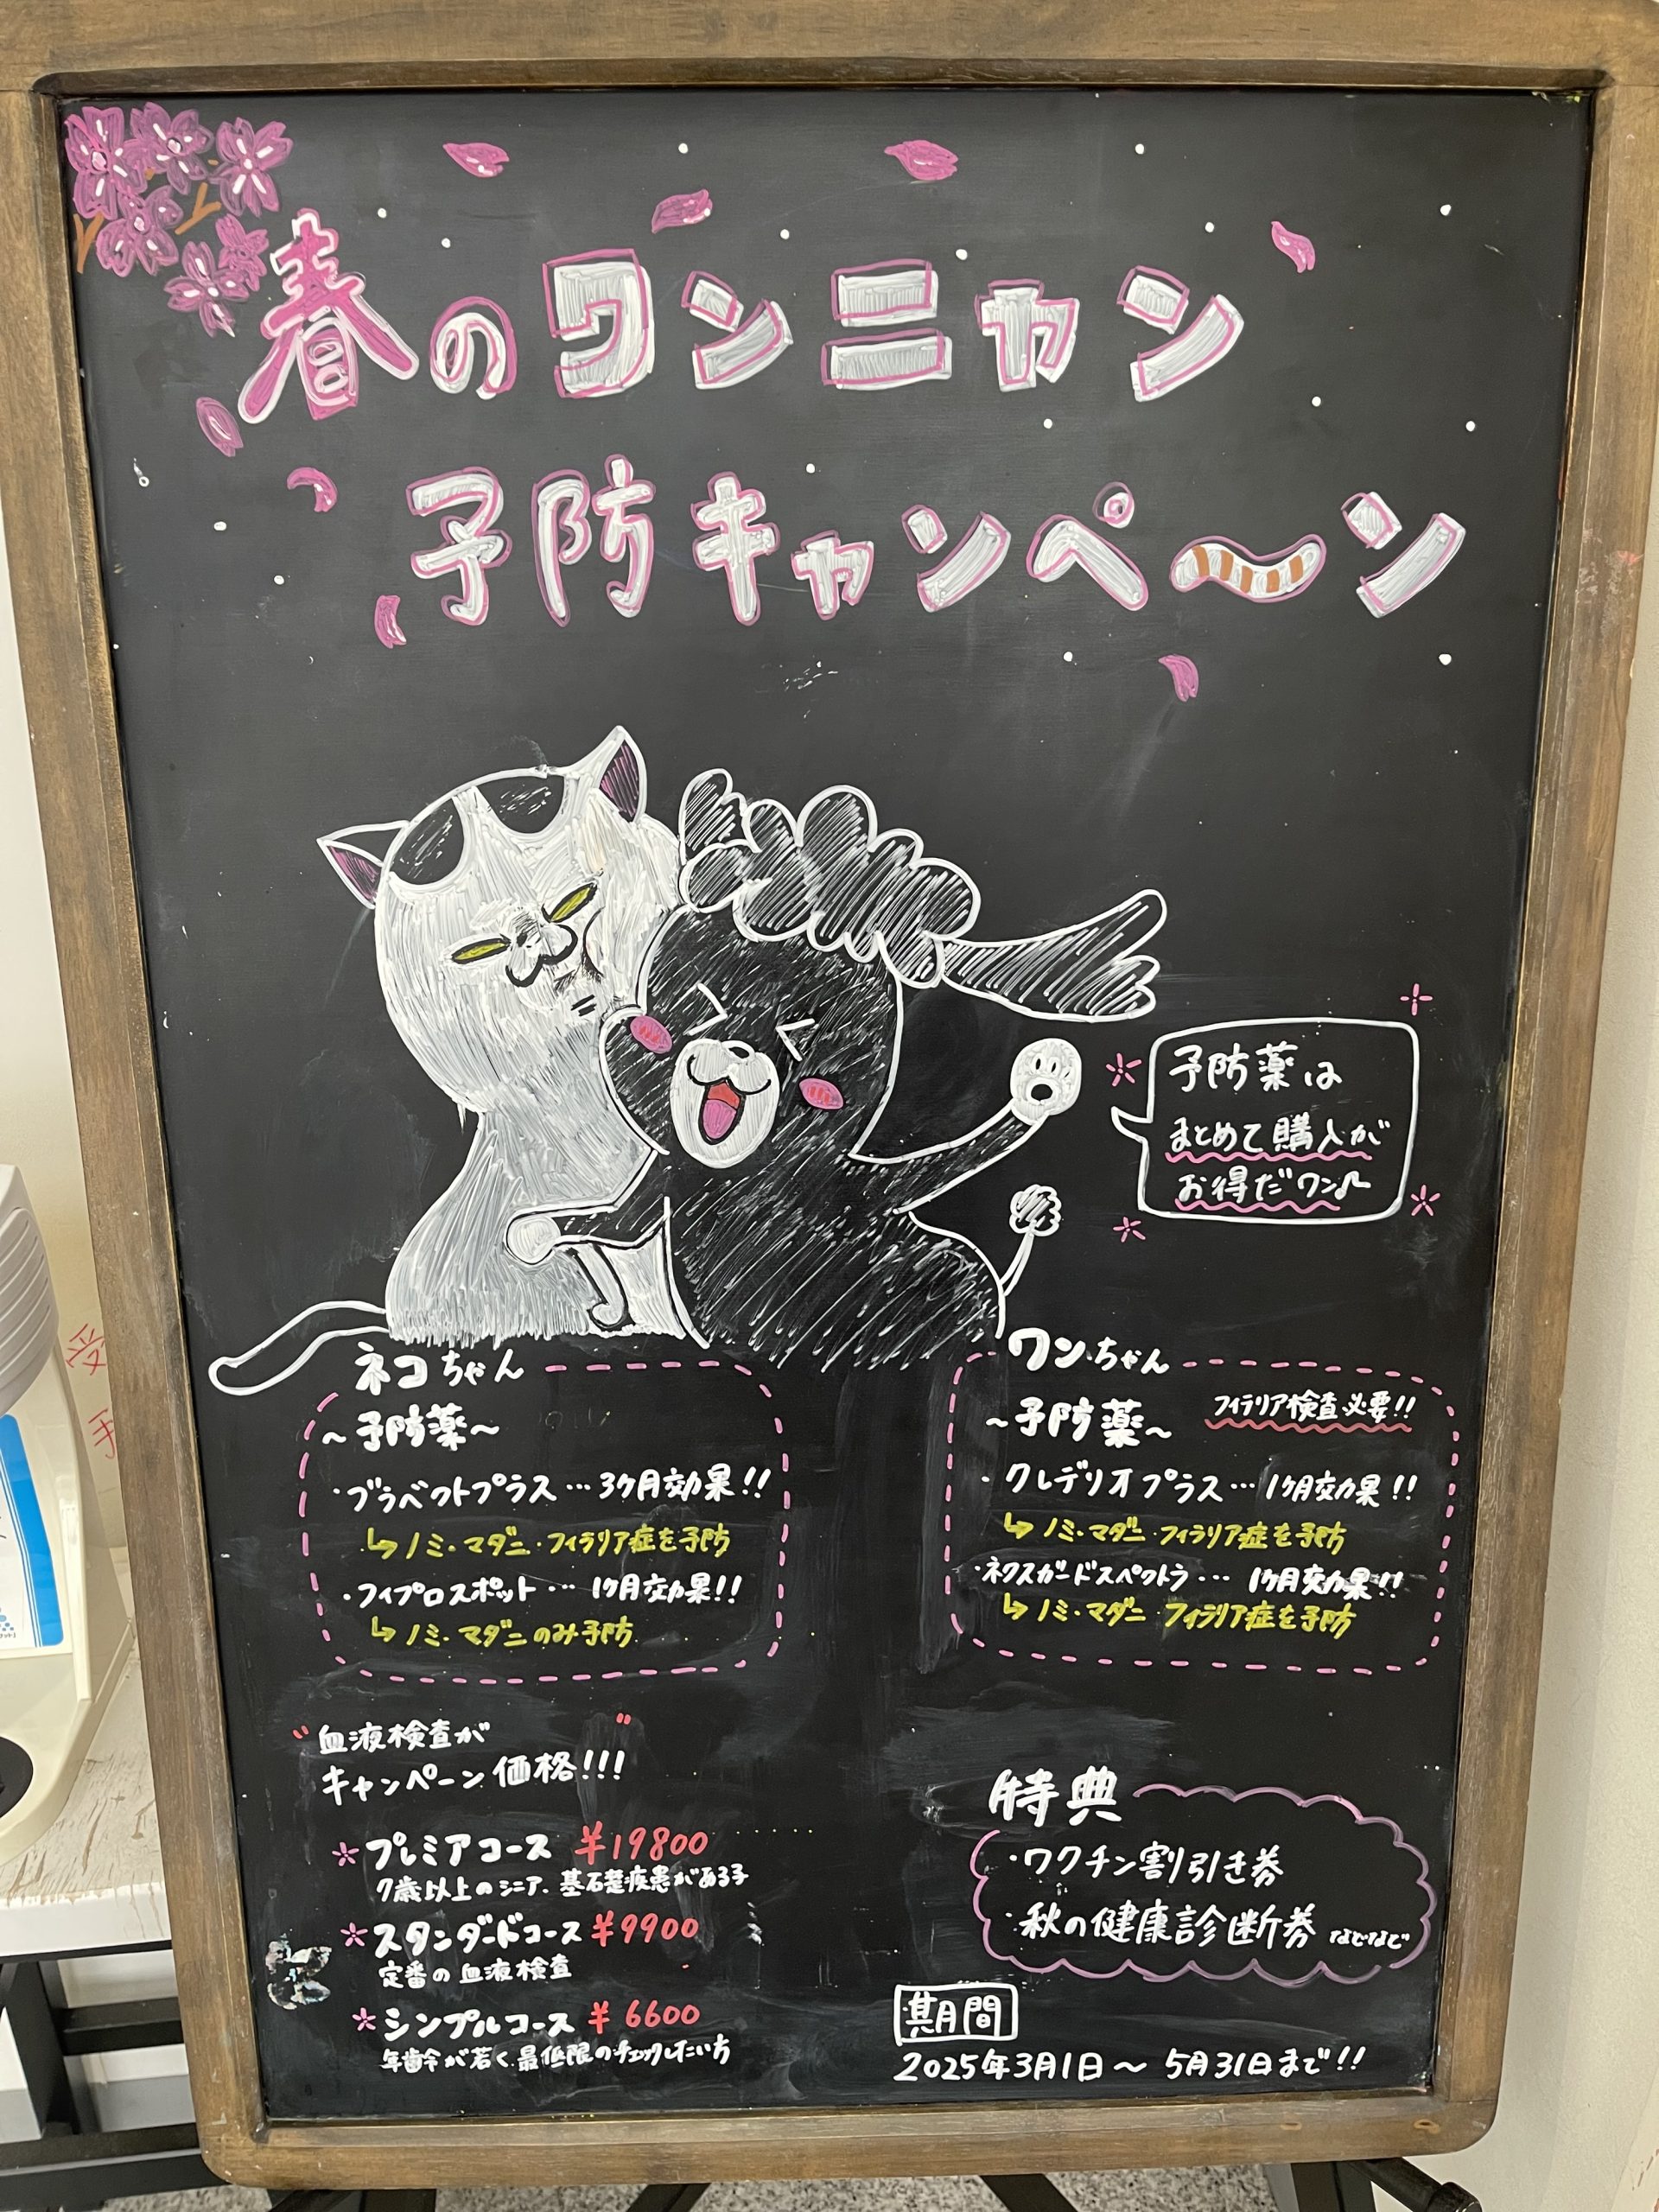 春のワンニャン
予防キャンペ〜ン
予防薬は
まとめて購入が
お得だワン♪
ネコちゃん
〜予防薬〜
・ブラベクトプラス…3ヶ月効果!!
↳ノミ・マダニ・フィラリア症を予防
・フィプロスポット… 1ヶ月効果!!
↳ノミ・マダニのみ予防
ワンちゃん
〜予防薬〜 フィラリア検査必要!!
・クレデリオプラス…1ヶ月効果!!
↳ノミ・マダニ・フィラリア症を予防
・ネクスガードスペクトラ… 1ヶ月効果!!
↳ノミ・マダニ フィラリア症を予防
"血液検査が"
キャンペーン価格!!!
*プレミアコース ¥19800
7歳以上のシニア、基礎疾患がある子
*スタンダードコース ¥9900
定番の血液検査
*シンプルコース ¥6600
年齢が若く最低限のチェックしたい方
特典
・ワクチン割引き券
・秋の健康診断券 などなど
期間
2025年3月1日〜5月31日まで!!
受